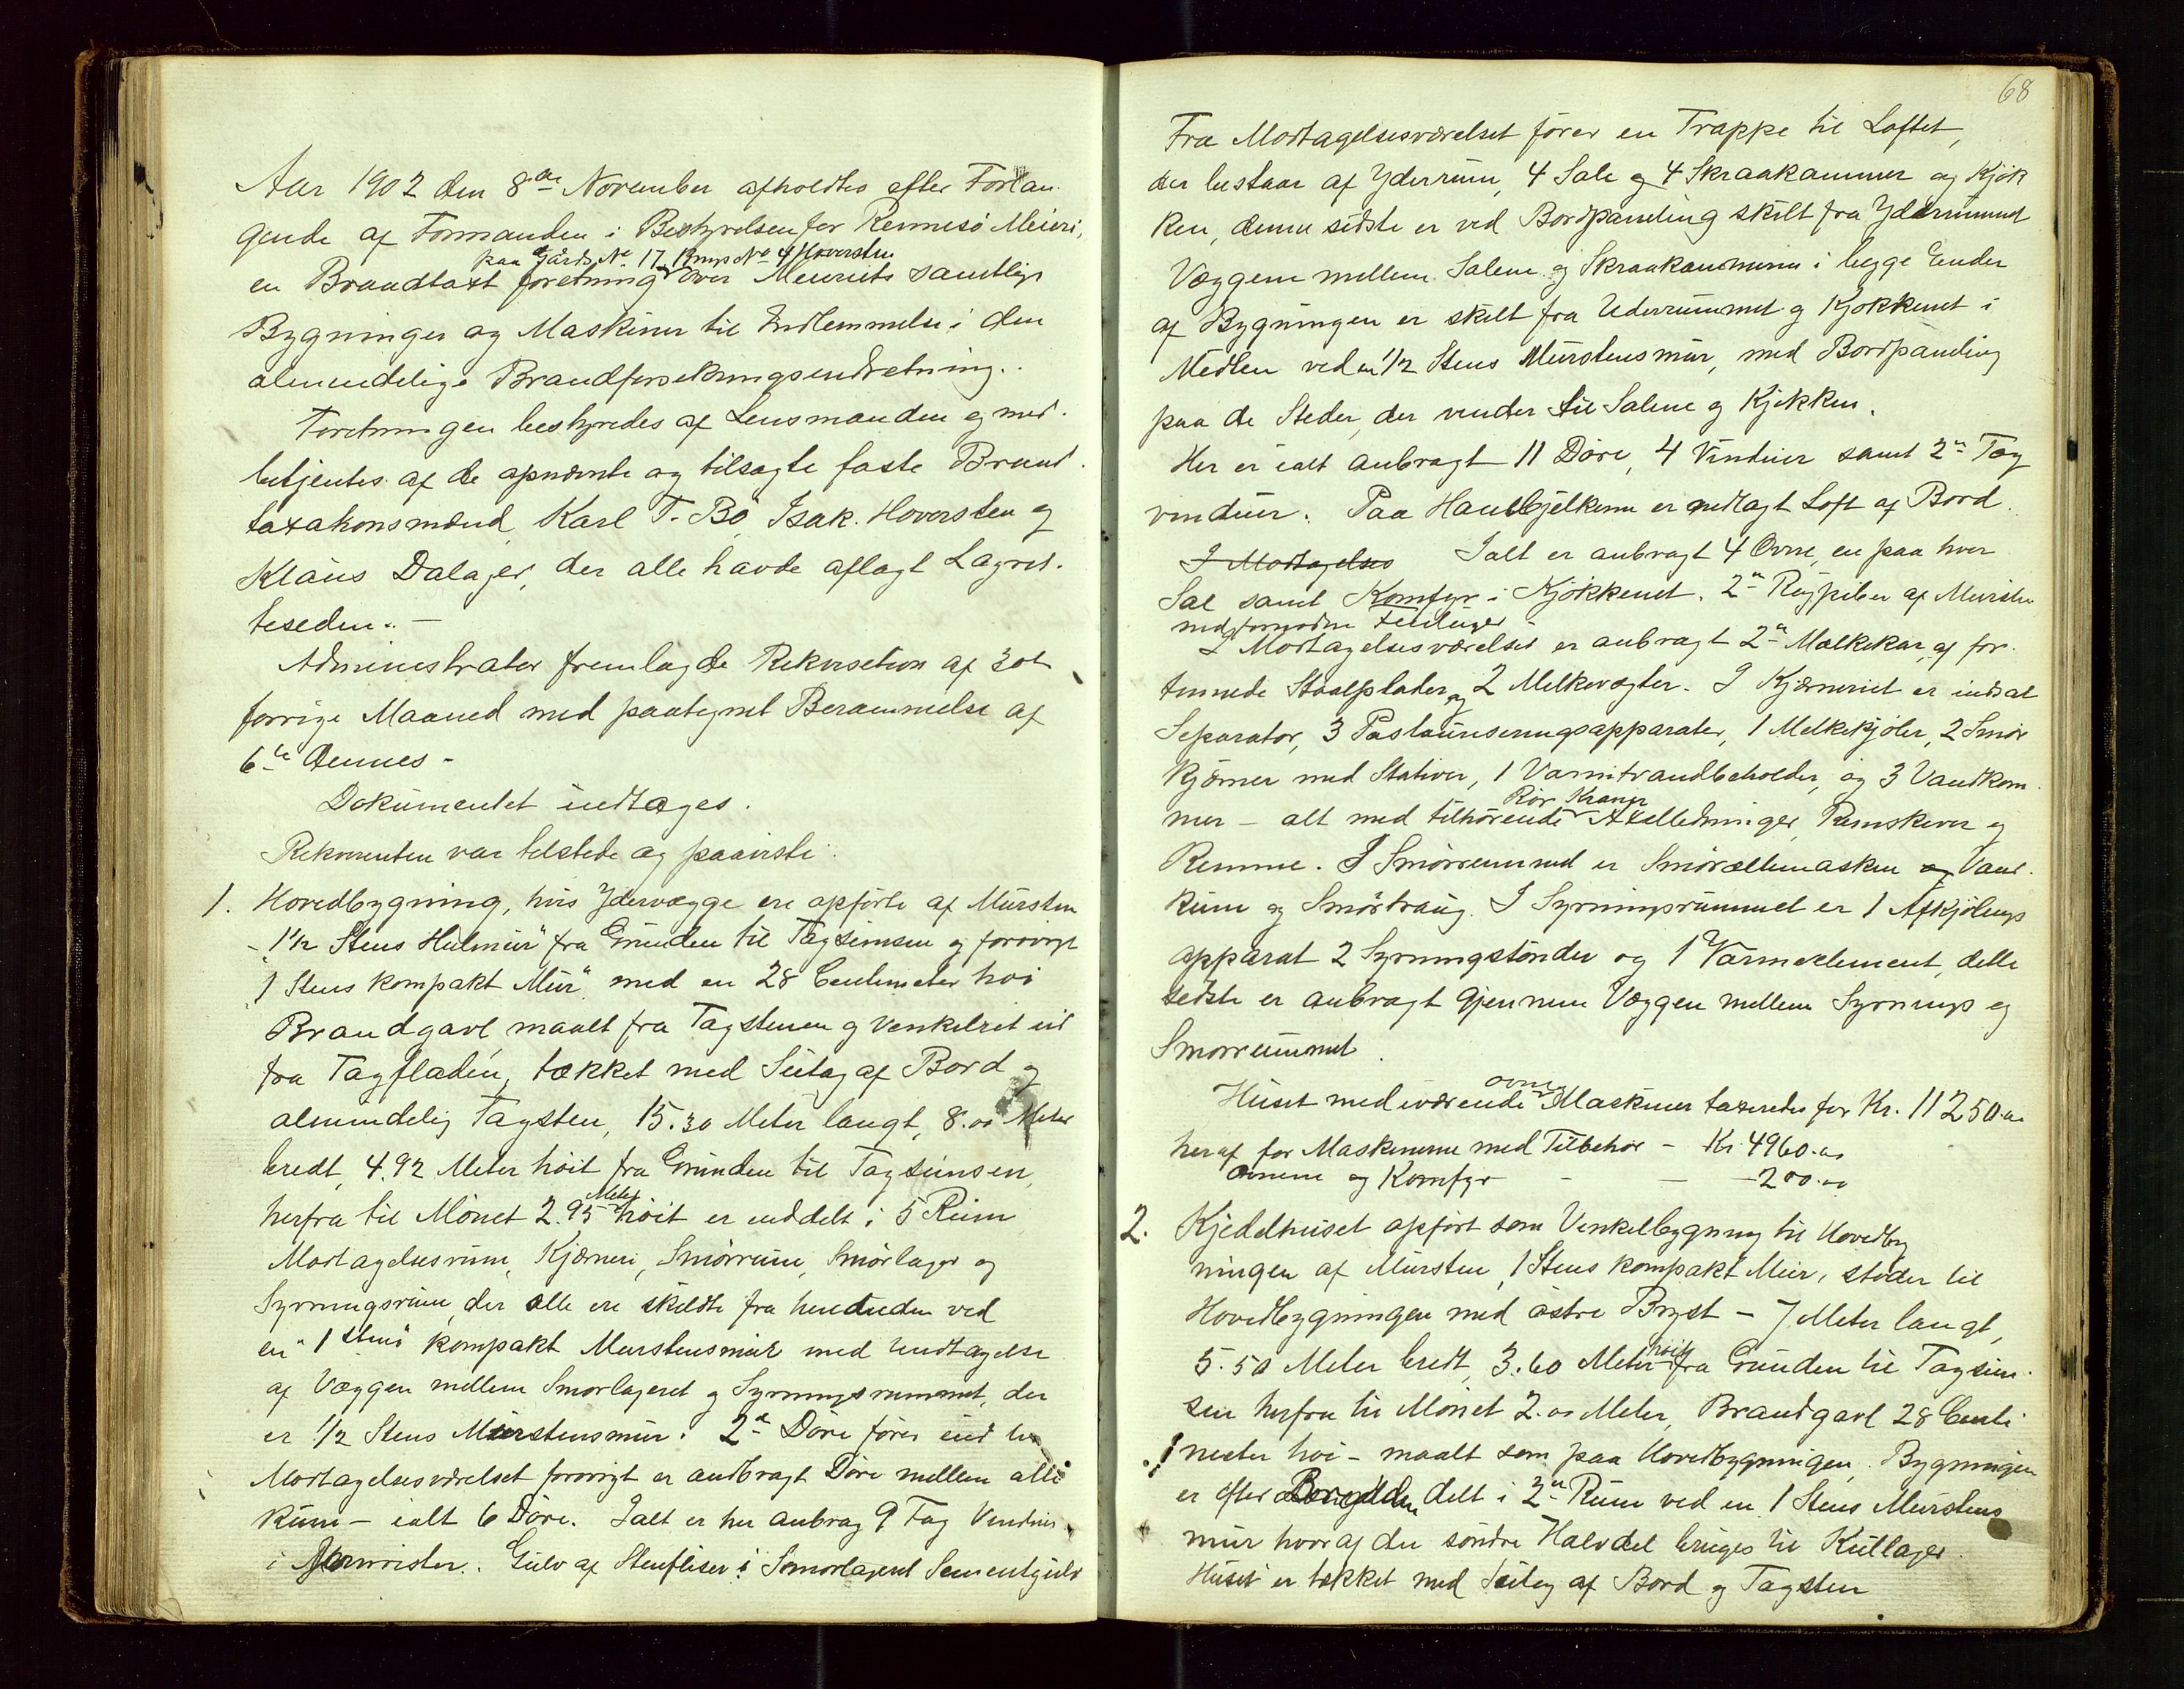 Aar 1902 den 8de November afholdtes efter Forlan-
gende af Formanden i Bestyrelsen for Rennesö Meieri,
paa Gårds No 17 Brugs No 4 Hoversten
en Brandtaxt forretning over Meieriets samtlige
Bygninger og Maskiner til Indlemmelse i den
almindelige Brandforsikringsindretning.
Forretningen bestyredes af Lensmanden og med-
betjentes af de opnævnte og tilsagte faste Brand-
taxationsmænd Karl T. Bö, Isak Hoversten og
Klaus Dalager, der alle havde aflagt Lagret-
teseden. —
Administrator fremlagde Rekvisition af 30te
forrige Maaned med paategnet Berammelse af
6te dennes -
Dokumentet indtages.
Rekvirenten var tilstede og paaviste:
1. Hovedbygning, hvis Ydervægge ere opförte af Mursten
- 1½ Stens Hulmur" fra Grunden til Tagsimsen og forøvrigt
1 Stens kompakt Mur" med en 28 Centimeter høi
Brandgavl, maalt fra Tagstenen og vinkelret ud
fra Tagfladen, tækket med Sutag af Bord og
almindelig Tagsten, 15.30 Meter langt, 8.00 Meter
bredt, 4.92 Meter höit fra Grunden til Tagsimsen,
herfra til Mönet 2.95 Meter höit er inddelt i 5 Rum
Modtagelsesrum, Kjærneri, Smörrum, Smörlager og
Syrningsrum, der alle ere skildte fra hinanden ved
en "1 Stens" kompakt Murstensmur med Undtagelse
af Væggen mellem Smorlageret og Syrningsrummet, der
er ½ Stens Murstensmur. 2de Döre förer ind til
Modtagelsesværelset forövrigt er andbragt Döre mellem alle
Rum - ialt 6 Döre. Ialt er her anbrag 9 Fag Vinduer
i Gulv af Stenfliser i Smorlageret Sementgulv
68
Fra Modtagelsesværelset förer en Trappe til Loftet,
der bestaar af Yderrum, 4 Sale og 4 Skraakammer og Kjök
ken, denne sidste er ved Bordpaneling skilt fra Yderrummet
Væggene mellem Salene og Skraakammerne i begge Ender
af Bygningen er skilt fra Uderrummet og Kjokkenet i
Midten ved en ½ Stens Murstensmur, med Bordpaneling
paa de Steder, der vender til Salene og Kjökken.
Her er ialt anbragt 11 Döre, 4 Vinduer samt 2de Tag
vinduer. Paa Hanebjelkerne er nedlagt Loft af Bord.
I Modtagelses Ialt er anbragt 4 Ovne, en paa hver
Sal samt Komfyr i Kjökkenet. 2de Rögpiber af Mursten
med fornødne
I Modtagelsesværelset er anbragt 2de Mælkekar, af for-
tinnede Staalplader og 2 Melkevægter. I Kjærneriet er indsat
Separator, 3 Pasteuriseringsapparater, 1 Melkekjöler, 2 Smör
kjærner med Stativer, 1 Varmtvandbeholder, og 3 Vandkom-
mer - alt med tilhörende Rör Kraner Axelledninger, Remskiver og
Remme. I Smörrummet er Smöræltemaskin og Vand-
kum og Smörtraug. I Syrningsrummet er 1 Afkjölings
apparat 2 Syrningstönder og 1 Varmeelement, dette
sidste er anbragt gjennem Væggen mellem Syrnings og
Smorrummet.
Huset med iværende ovne Maskiner taxeredes for Kr. 11250.00
heraf for Maskinerne med Tilbehör - Kr 4960.00
Ovnene og Komfyr - - - 200.00
2. Kjedelhuset opfört som Vinkelbygning til Hovedbyg
ningen af Mursten, 1 Stens kompakt Mur, stöder til
Hovedbygningen med östre Bryst - 7 Meter langt,
5.50 Meter bredt, 3.60 Meter höit fra Grunden til Tagsim-
sen herfra til Mönet 2.00 Meter, Brandgavl 28 Centi
meter höi - maalt som paa Hovedbygningen. Bygningen
er efter delt i 2de Rum ved en 1 Stens Murstens
mur hvoraf den söndre Halvdel bruges til Kullager.
Huset er tækket med Sutag af Bord og Tagsten